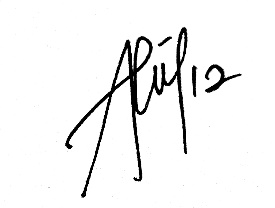 Alif 12